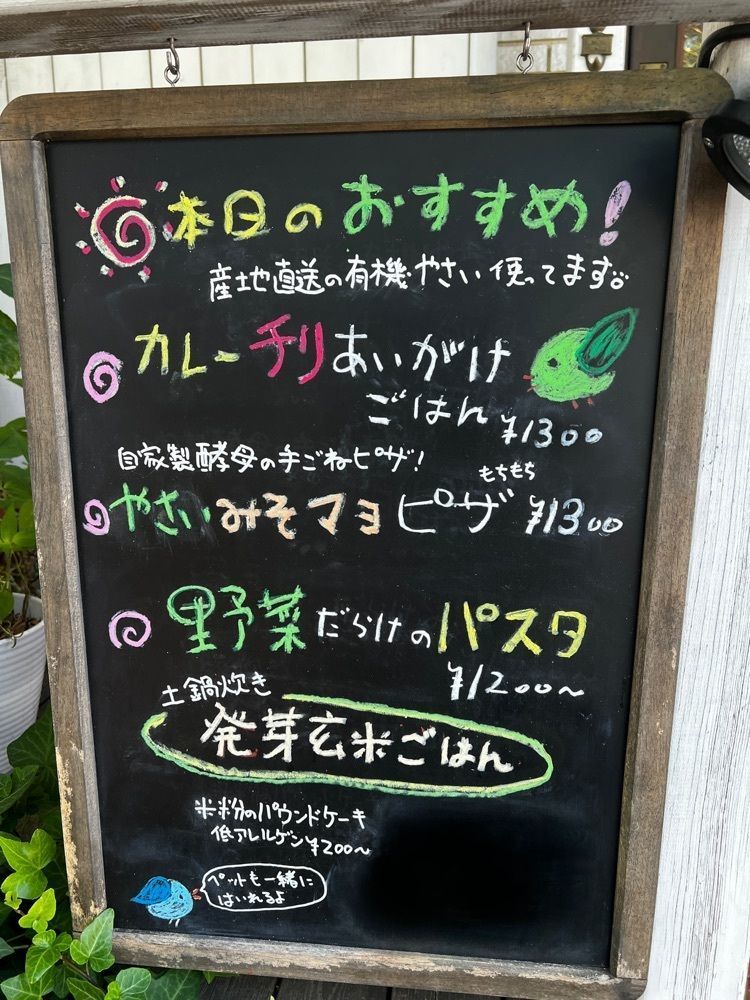 本日のおすすめ!
産地直送の有機やさい使ってます。
カレーチリあいがけ
ごはん ¥1300
自家製酵母の手ごねピザ!
もちもち
やさいみそマヨピザ ¥1300
野菜だらけのパスタ
¥1200~
土鍋炊き
発芽玄米ごはん
米粉のパウンドケーキ
低アレルゲン ¥200~
ペットも一緒に
はいれるよ